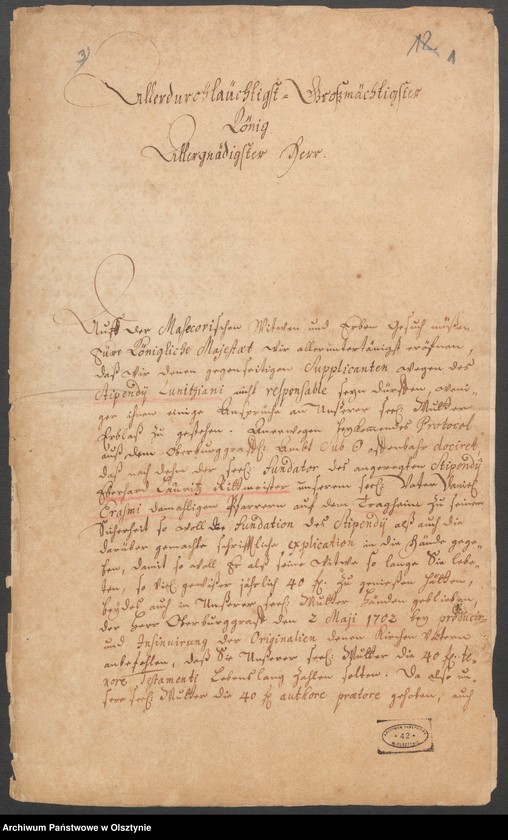 3
12
1
Allerdurchläuchtigst-Großmächtigster
König
Allergnädigster Herr.
Auff der Masecovischen Witwen und Erben Gesuch müßen
Eure Königliche Majestæt wir allerunterthänigst eröfnen,
daß wir denen gegenseitigen Supplicanten wegen des
Stipendÿ Lunitziani nicht responsable seyn dürffen, weni-
ger ihnen einige Ansprüche an Unserer seel: Mutter
Nachlaß zu gestehen. Protocol
auß dem Oberburggräffl. Ambt Sub offenbahr dociret,
daß nach dehm der seel: Fundator des angeregten Stipendÿ
Eberhard Lauritz Rittmeister unserem seel: Vater Daniel
Erasmi damahligen Pfarrern auf dem Tragheim zu seiner
Sicherheit so woll die Fundation des Stipendÿ alß auch die
darüber gemachte schrifftliche explication in die Hände gege-
ben, damit so woll Er alß seine Witwe so lange Sie lebe-
ten, so viel gewißer jährlich 40 fl. zu genießen hätten,
beydes auch in Unserer seel: Mutter Händen geblieben,
der Herr Oberburggraff den 2 Maji 1702 bey
und Insinuirung der Originalien denen Kirchen Vätern
anbefohlen, daß Sie Unserer seel: Mutter die 40 fl. te-
nore Testamenti Lebenslang zahlen solten. Da also un-
sere seel: Mutter die 40 fl authore prætore gehoben, auch
ARCHIWUM PAŃSTWOWE
* 42 *
W OLSZTYNIE
Archiwum Państwowe w Olsztynie